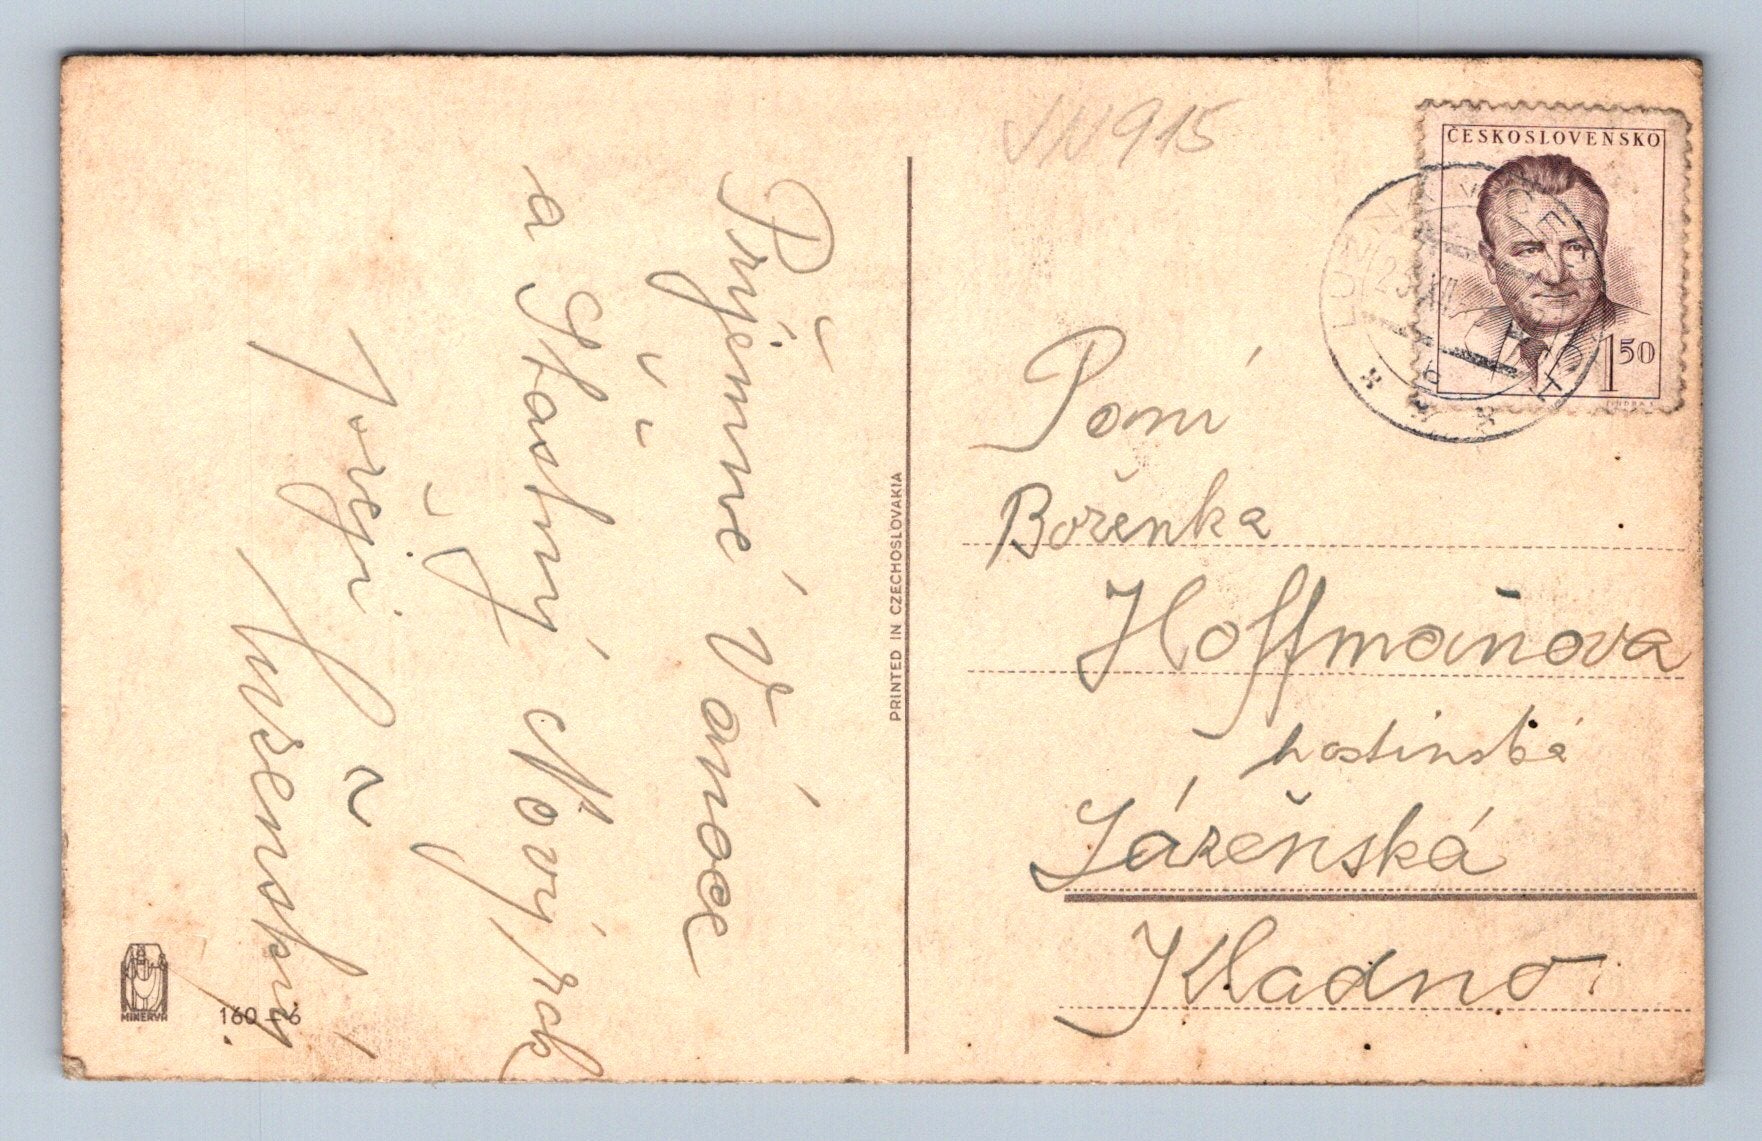 Příjemné Vánoce
a šťastný Nový rok
přeji
JN915
ČESKOSLOVENSKO
1 50
Paní
Boženka
Hoffmanova
hostinská
Lázeňská
Kladno
PRINTED IN CZECHOSLOVAKIA
MINERVA
160 – 6